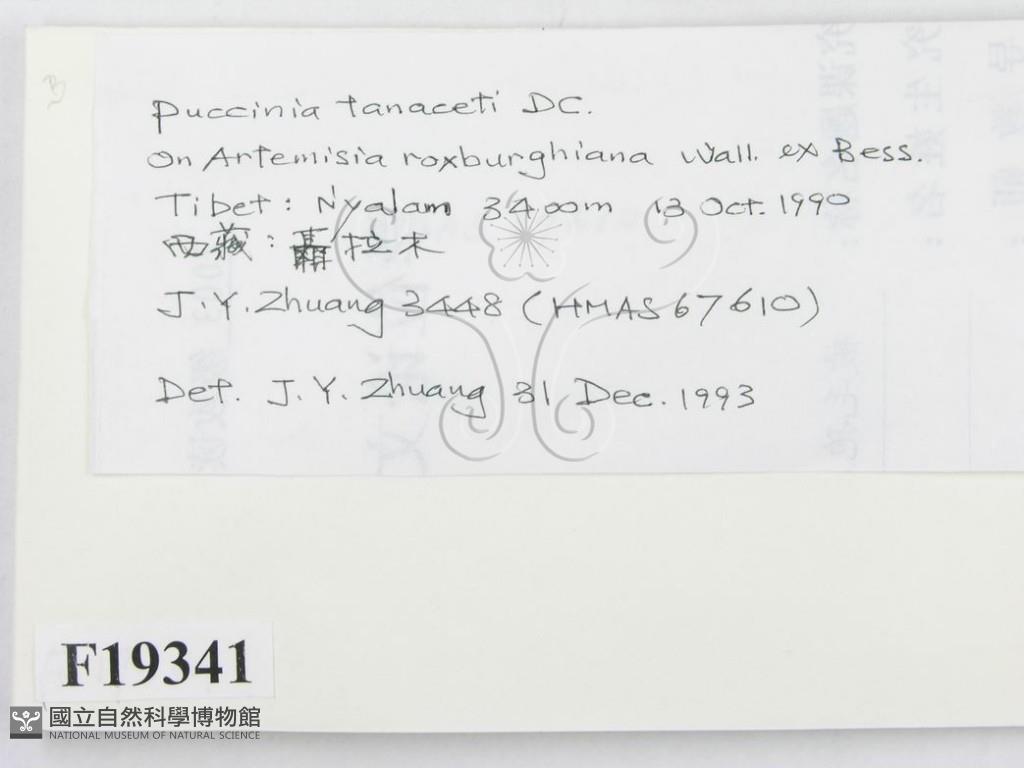 Puccinia tanaceti DC.
On Artemisia roxburghiana Wall. ex Bess.
Tibet: Nyalam 3400m 13 Oct. 1990
西藏: 聶拉木
J.Y. Zhuang 3448 (HMAS 67610)
Det. J.Y. Zhuang 31 Dec. 1993
F19341
國立自然科學博物館
NATIONAL MUSEUM OF NATURAL SCIENCE